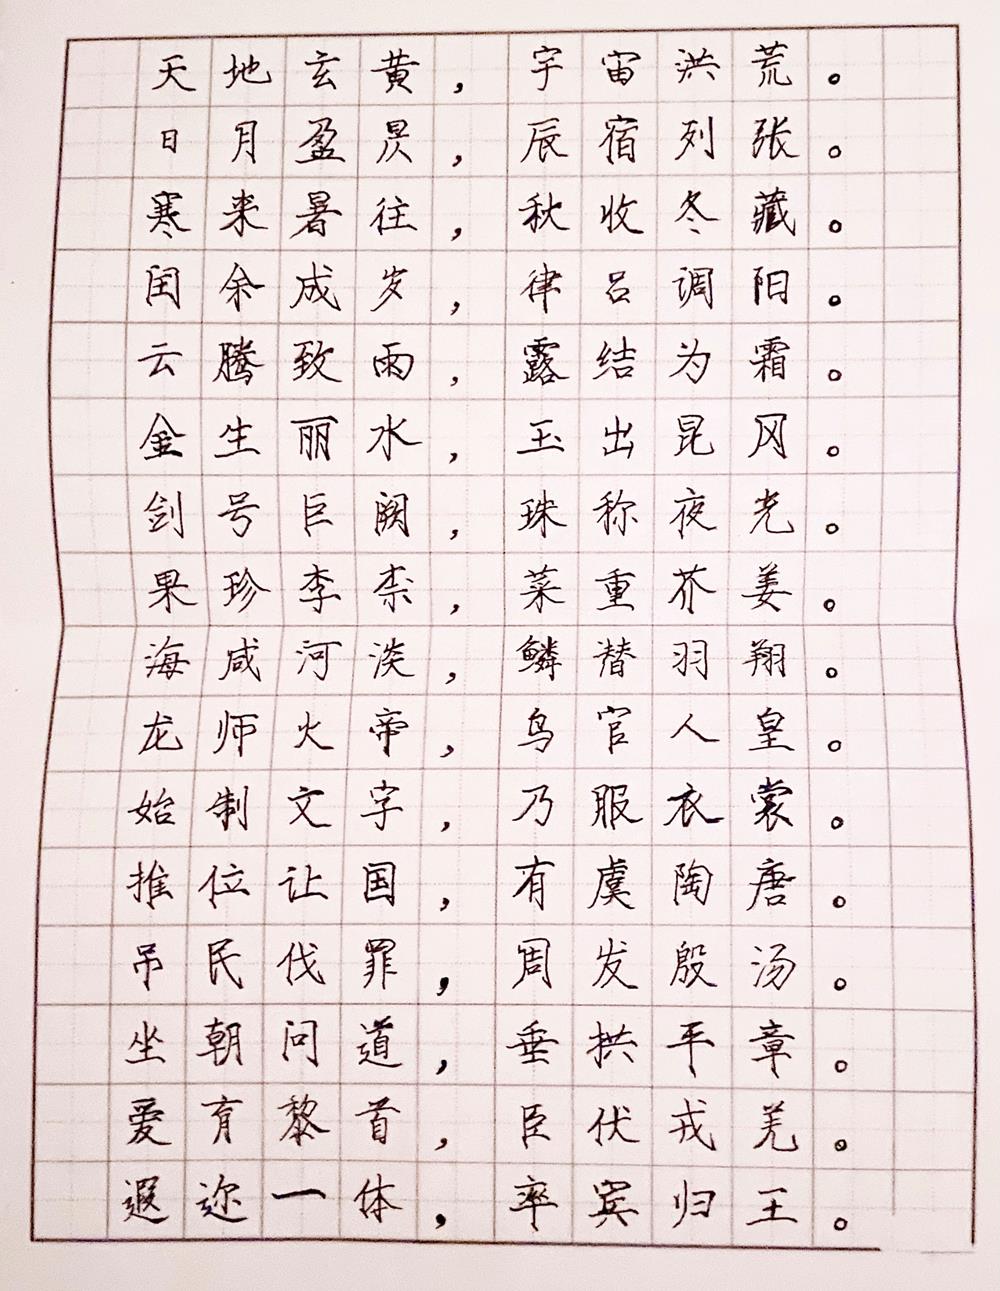 天地玄黄，宇宙洪荒。
日月盈昃，辰宿列张。
寒来暑往，秋收冬藏。
闰余成岁，律吕调阳。
云腾致雨，露结为霜。
金生丽水，玉出昆冈。
剑号巨阙，珠称夜光。
果珍李柰，菜重芥姜。
海咸河淡，鳞潜羽翔。
龙师火帝，鸟官人皇。
始制文字，乃服衣裳。
推位让国，有虞陶唐。
吊民伐罪，周发殷汤。
坐朝问道，垂拱平章。
爱育黎首，臣伏戎羌。
遐迩一体，率宾归王。